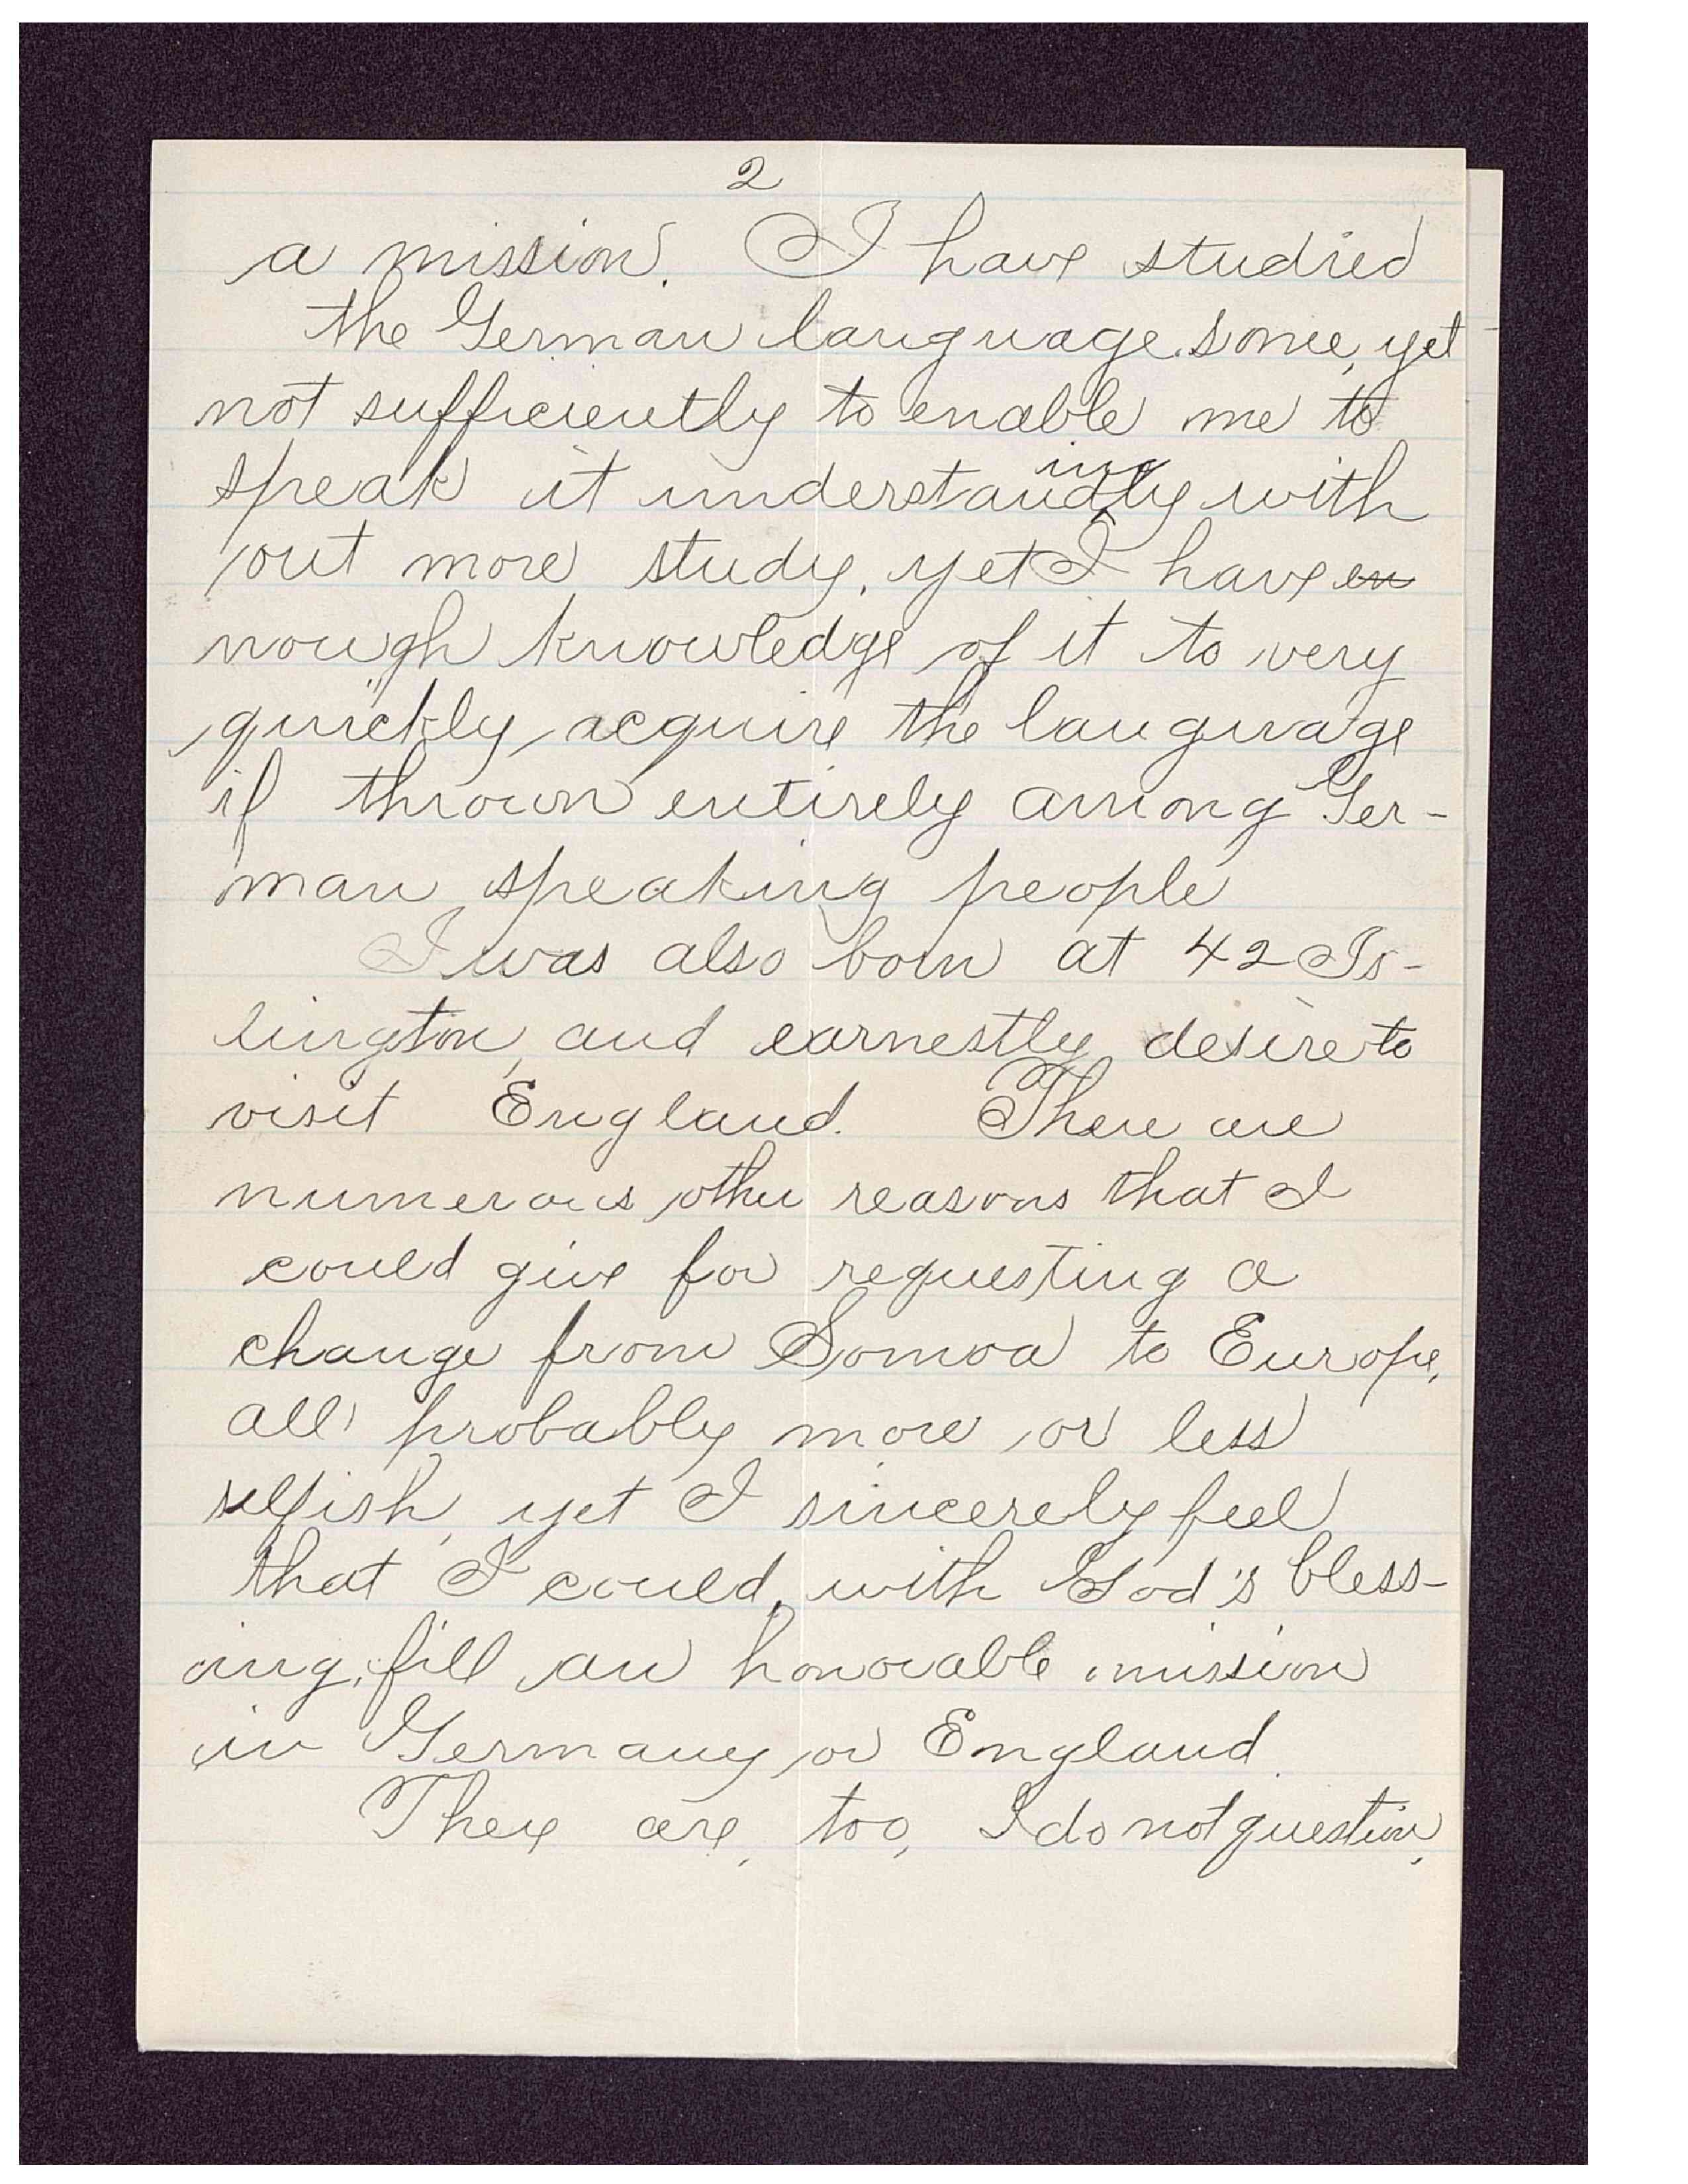 2
a mission. I have studied
the German language some, yet
not sufficiently to enable me to
speak it understandingly with
out more study, yet I have en
nough knowledge of it to very
quickly acquire the language
if thrown entirely among Ger-
man speaking people
I was also born at 42 Is-
lington, and earnestly desire to
visit England. There are
numerous other reasons that I
could give for requesting a
change from Somoa to Europe,
all probably more or less
selfish, yet I sincerely feel
that I could, with God's bless-
ing, fill an honorable mission
in Germany or England.
There are, too, I do not question,